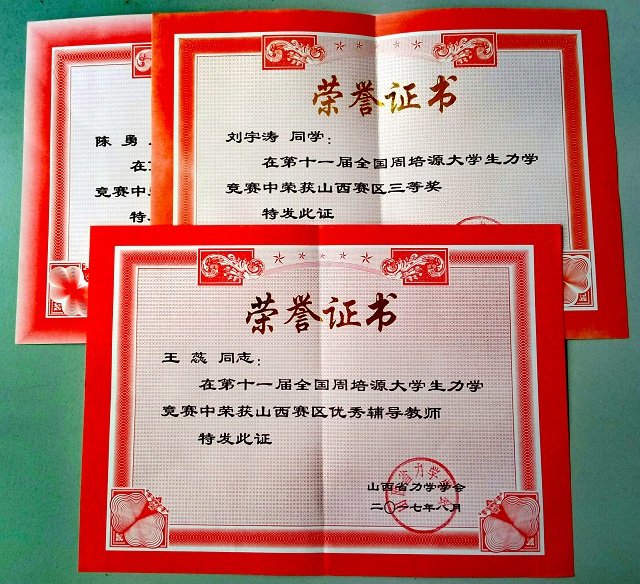 陈 勇
在
竞赛中
特
荣誉证书
刘宇涛 同学：
在第十一届全国周培源大学生力学
竞赛中荣获山西赛区三等奖
特发此证
荣誉证书
王 蕊 同志：
在第十一届全国周培源大学生力学
竞赛中荣获山西赛区优秀辅导教师
特发此证
山西省力学学会
二〇一七年八月